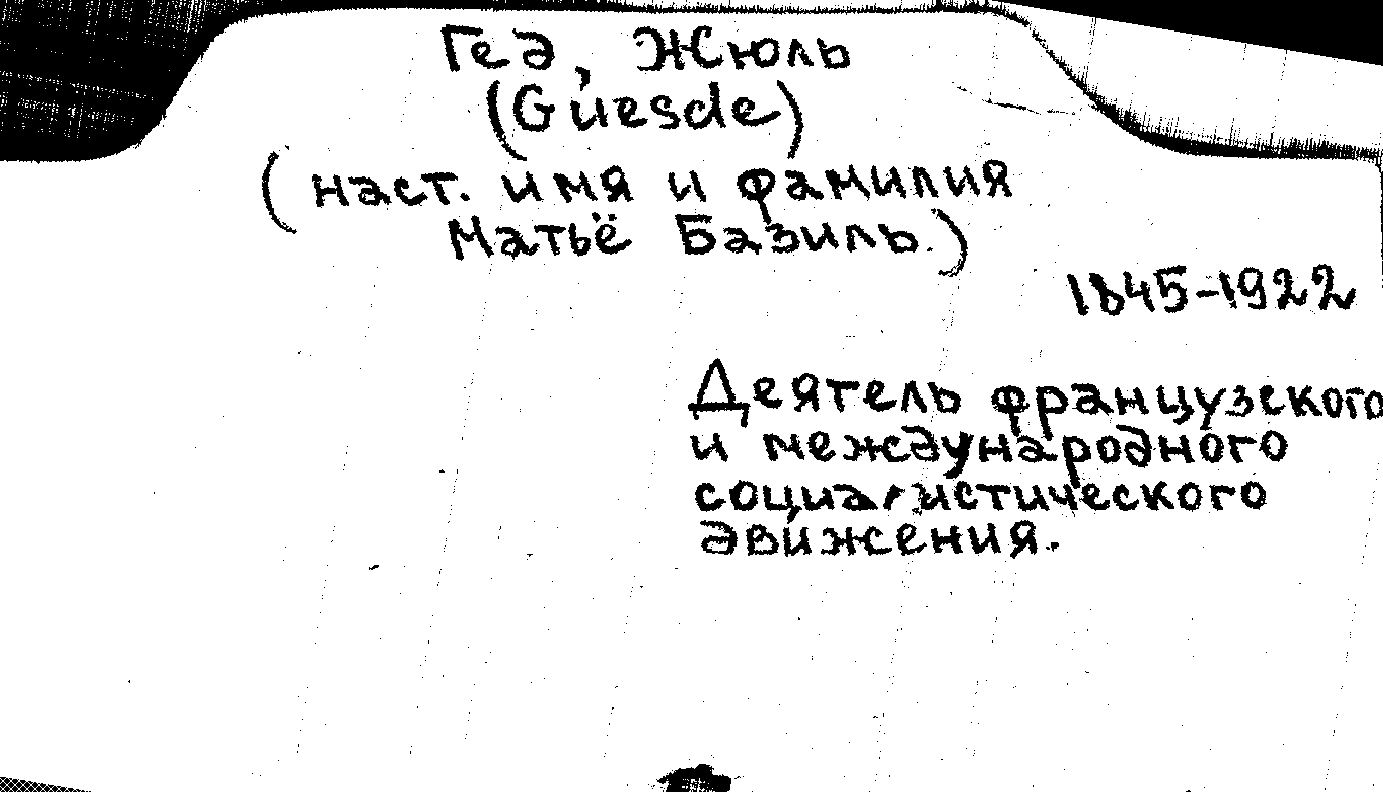 Гед, Жюль
(Guesde)
(наст. имя и фамилия
Матьё Базиль.)
1845-1922
Деятель французского
и международного
социалистического
движения.